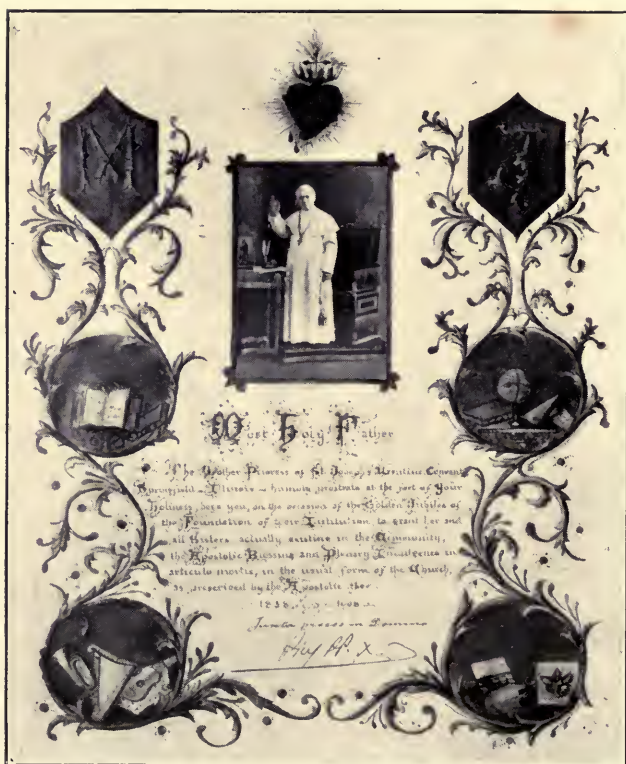 M
J
Most Holy Father
The Mother Prioress of St Joseph's Ursuline Convent
Springfield - Illinois - humbly prostrate at the feet of Your
Holiness, begs you, on the occasion of the Golden Jubilee of
the Foundation of her Institution to grant her and
all Sisters actually existing in the Community,
the Apostolic Blessing and Plenary Indulgence in
articulo mortis, in the usual form of the Church,
as prescribed by the Apostolic
Juxta preces in Domino
Pius PP. X.